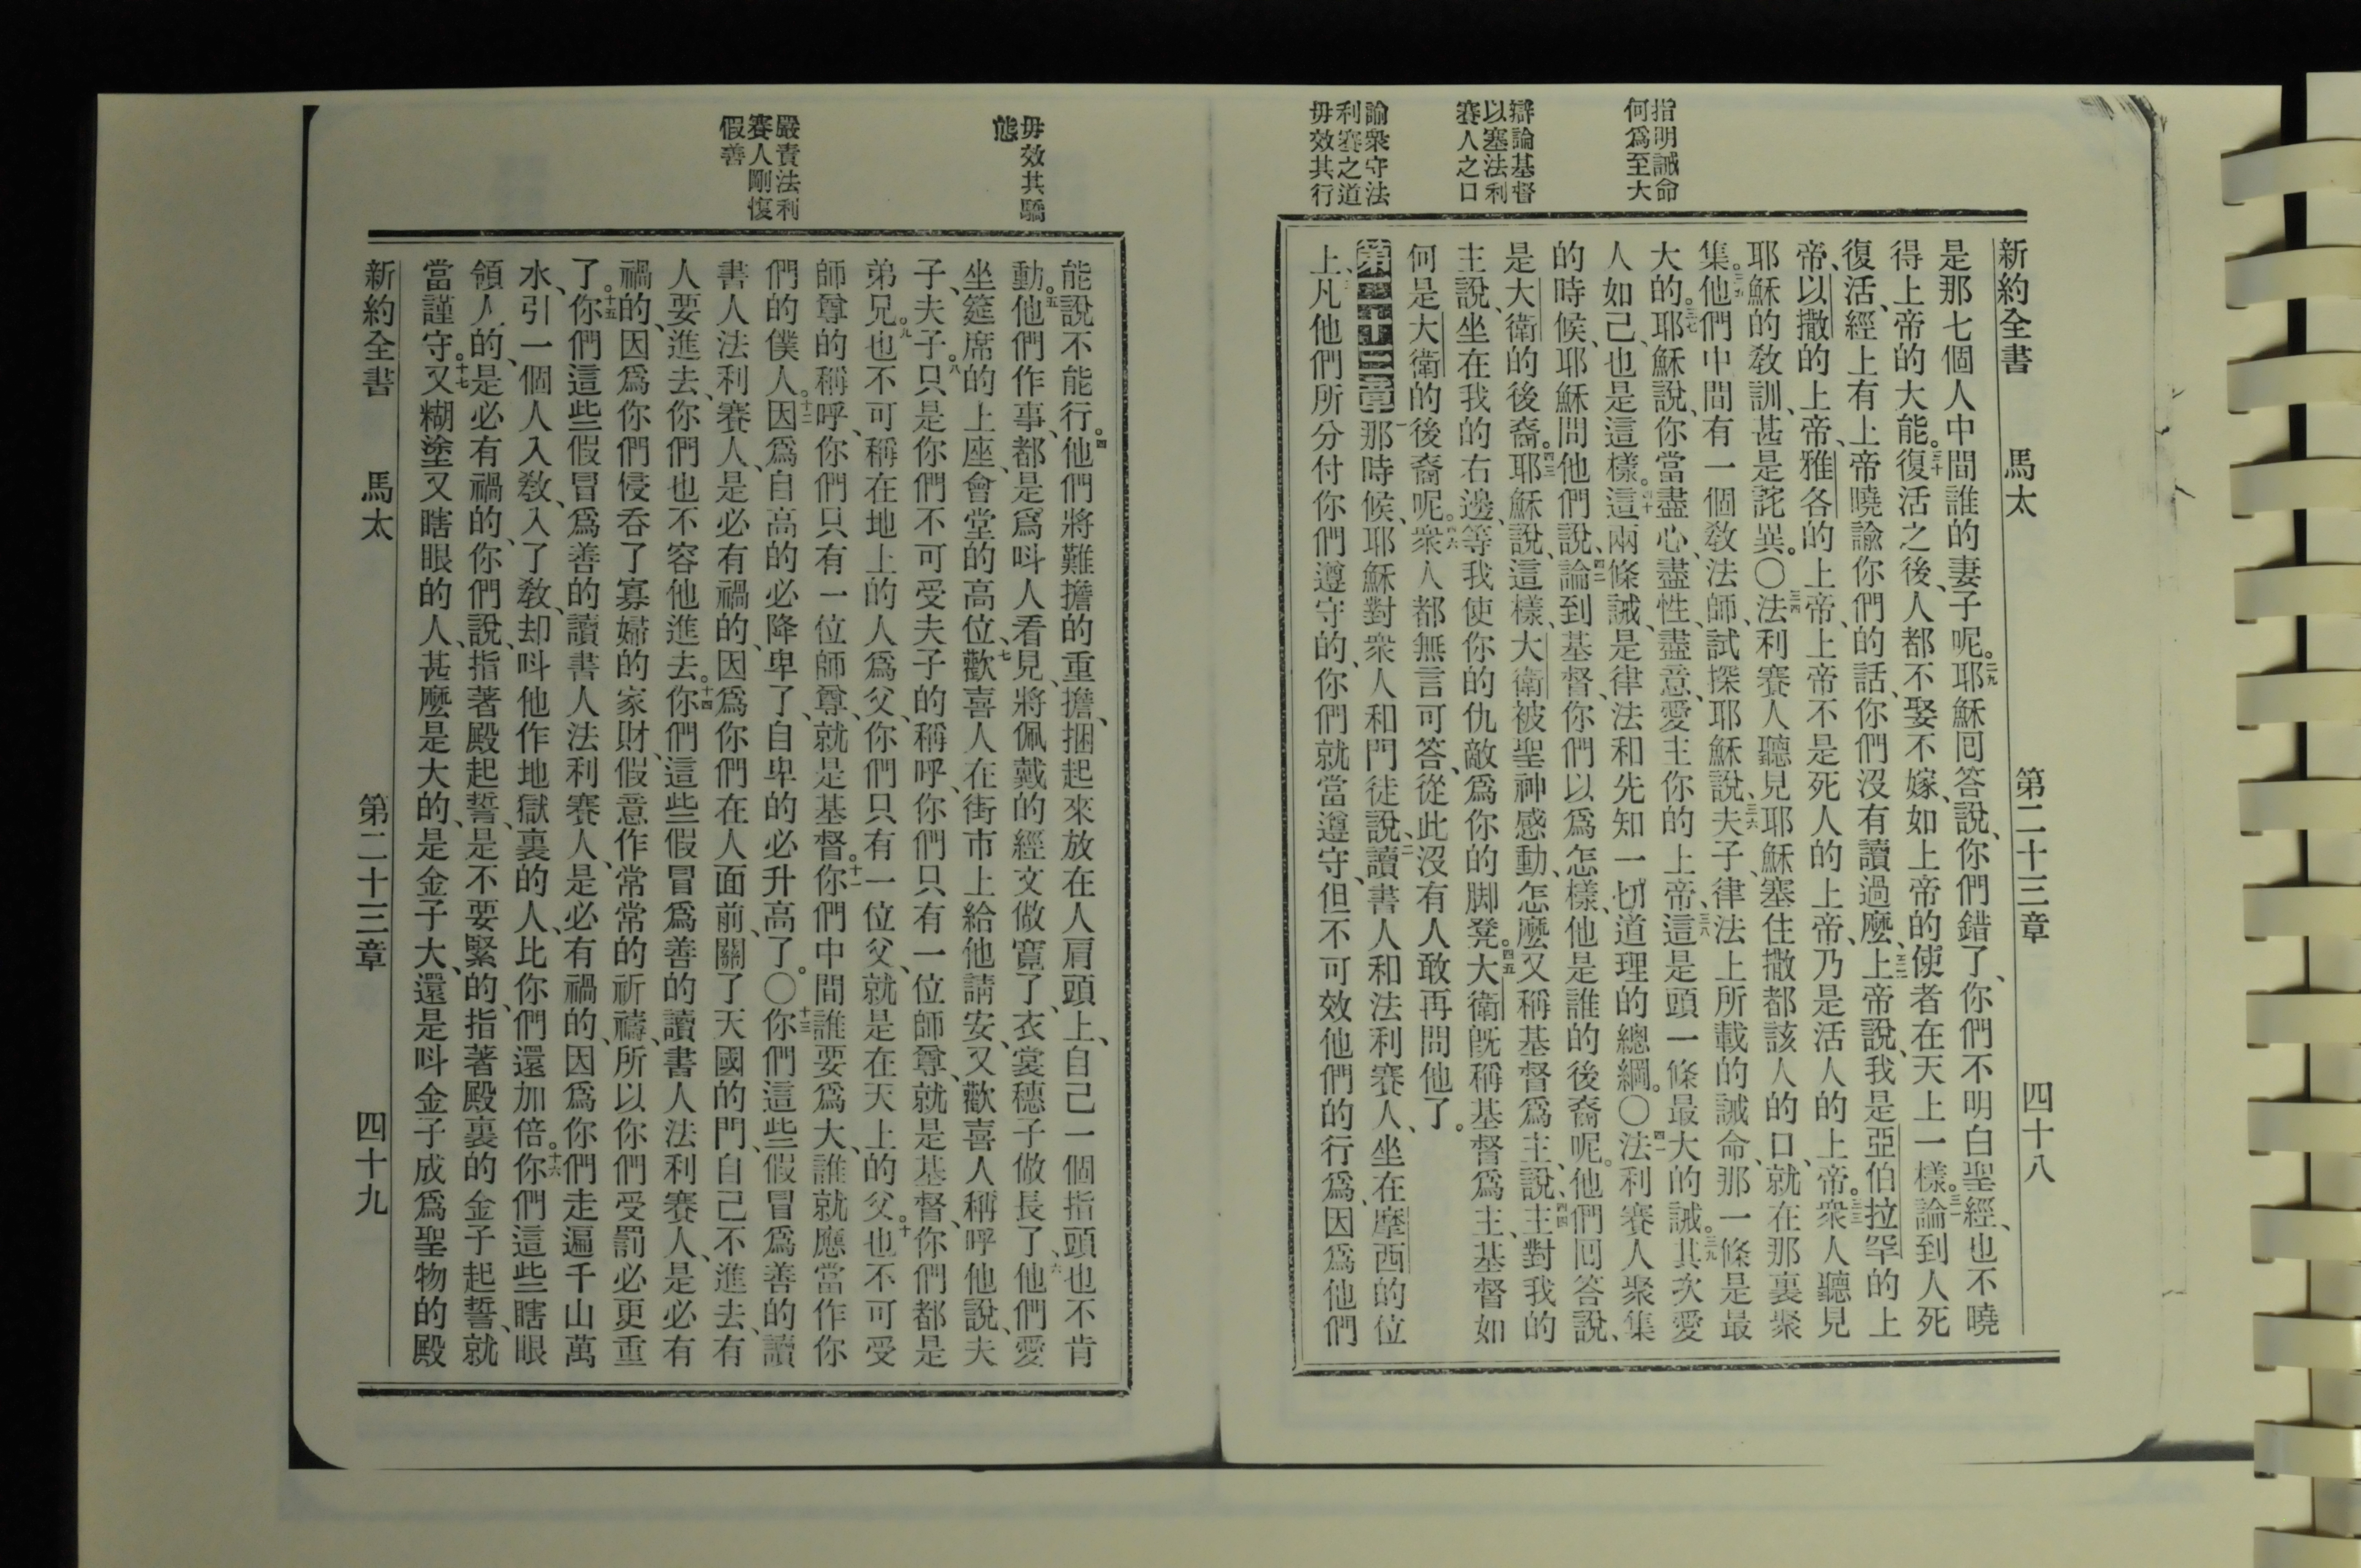 指明誡命
何爲至大
辯論基督
以塞法利
賽人之口
諭衆守法
利賽之道
毋效其行
新約全書 馬太 第二十三章 四十八
是那七個人中間誰的妻子呢。二九耶穌回答說、你們錯了、你們不明白聖經、也不曉
得上帝的大能。三十復活之後、人都不娶不嫁、如上帝的使者在天上一樣。三一論到人死
復活、經上有上帝曉諭你們的話、你們沒有讀過麼、三二上帝說、我是亞伯拉罕的上
帝、以撒的上帝、雅各的上帝、上帝不是死人的上帝、乃是活人的上帝。三三衆人聽見
耶穌的教訓、甚是詫異。〇三四法利賽人聽見耶穌塞住撒都該人的口、就在那裏聚
集。三五他們中間有一個教法師、試探耶穌說、三六夫子、律法上所載的誡命、那一條是最
大的。三七耶穌說、你當盡心、盡性、盡意、愛主你的上帝、三八這是頭一條最大的誡。三九其次愛
人如己、也是這樣。四十這兩條誡、是律法和先知一切道理的總綱。〇四一法利賽人聚集
的時候、耶穌問他們說、四二論到基督、你們以爲怎樣、他是誰的後裔呢。他們回答說、
是大衛的後裔。四三耶穌說、這樣、大衛被聖神感動、怎麼又稱基督爲主、說、四四主對我的
主說、坐在我的右邊、等我使你的仇敵爲你的脚凳。四五大衛旣稱基督爲主、基督如
何是大衛的後裔呢。四六衆人都無言可答、從此沒有人敢再問他了。
第二十三章 一那時候、耶穌對衆人和門徒說、二讀書人和法利賽人、坐在摩西的位
上、三凡他們所分付你們遵守的、你們就當遵守、但不可效他們的行爲、因爲他們
毋效其驕
態
嚴責法利
賽人剛愎
假善
能說不能行。四他們將難擔的重擔、捆起來放在人肩頭上、自己一個指頭也不肯
動。五他們作事、都是爲呌人看見、將佩戴的經文做寬了、衣裳穗子做長了、六他們愛
坐筵席的上座、會堂的高位、七歡喜人在街市上給他請安、又歡喜人稱呼他說、夫
子、夫子。八只是你們不可受夫子的稱呼、你們只有一位師尊、就是基督、你們都是
弟兄。九也不可稱在地上的人爲父、你們只有一位父、就是在天上的父。十也不可受
師尊的稱呼、你們只有一位師尊、就是基督。十一你們中間誰要爲大、誰就應當作你
們的僕人。十二因爲自高的必降卑了、自卑的必升高了。〇十三你們這些假冒爲善的讀
書人法利賽人、是必有禍的、因爲你們在人面前、關了天國的門、自己不進去、有
人要進去、你們也不容他進去。十四你們這些假冒爲善的讀書人法利賽人、是必有
禍的、因爲你們侵吞了寡婦的家財、假意作常常的祈禱、所以你們受罰必更重
了。十五你們這些假冒爲善的讀書人法利賽人、是必有禍的、因爲你們走遍千山萬
水、引一個人入教、入了教、却呌他作地獄裏的人、比你們還加倍。十六你們這些瞎眼
領人的、是必有禍的、你們說、指著殿起誓、是不要緊的、指著殿裏的金子起誓、就
當謹守。十七又糊塗又瞎眼的人、甚麼是大的、是金子大、還是呌金子成爲聖物的殿
新約全書 馬太 第二十三章 四十九